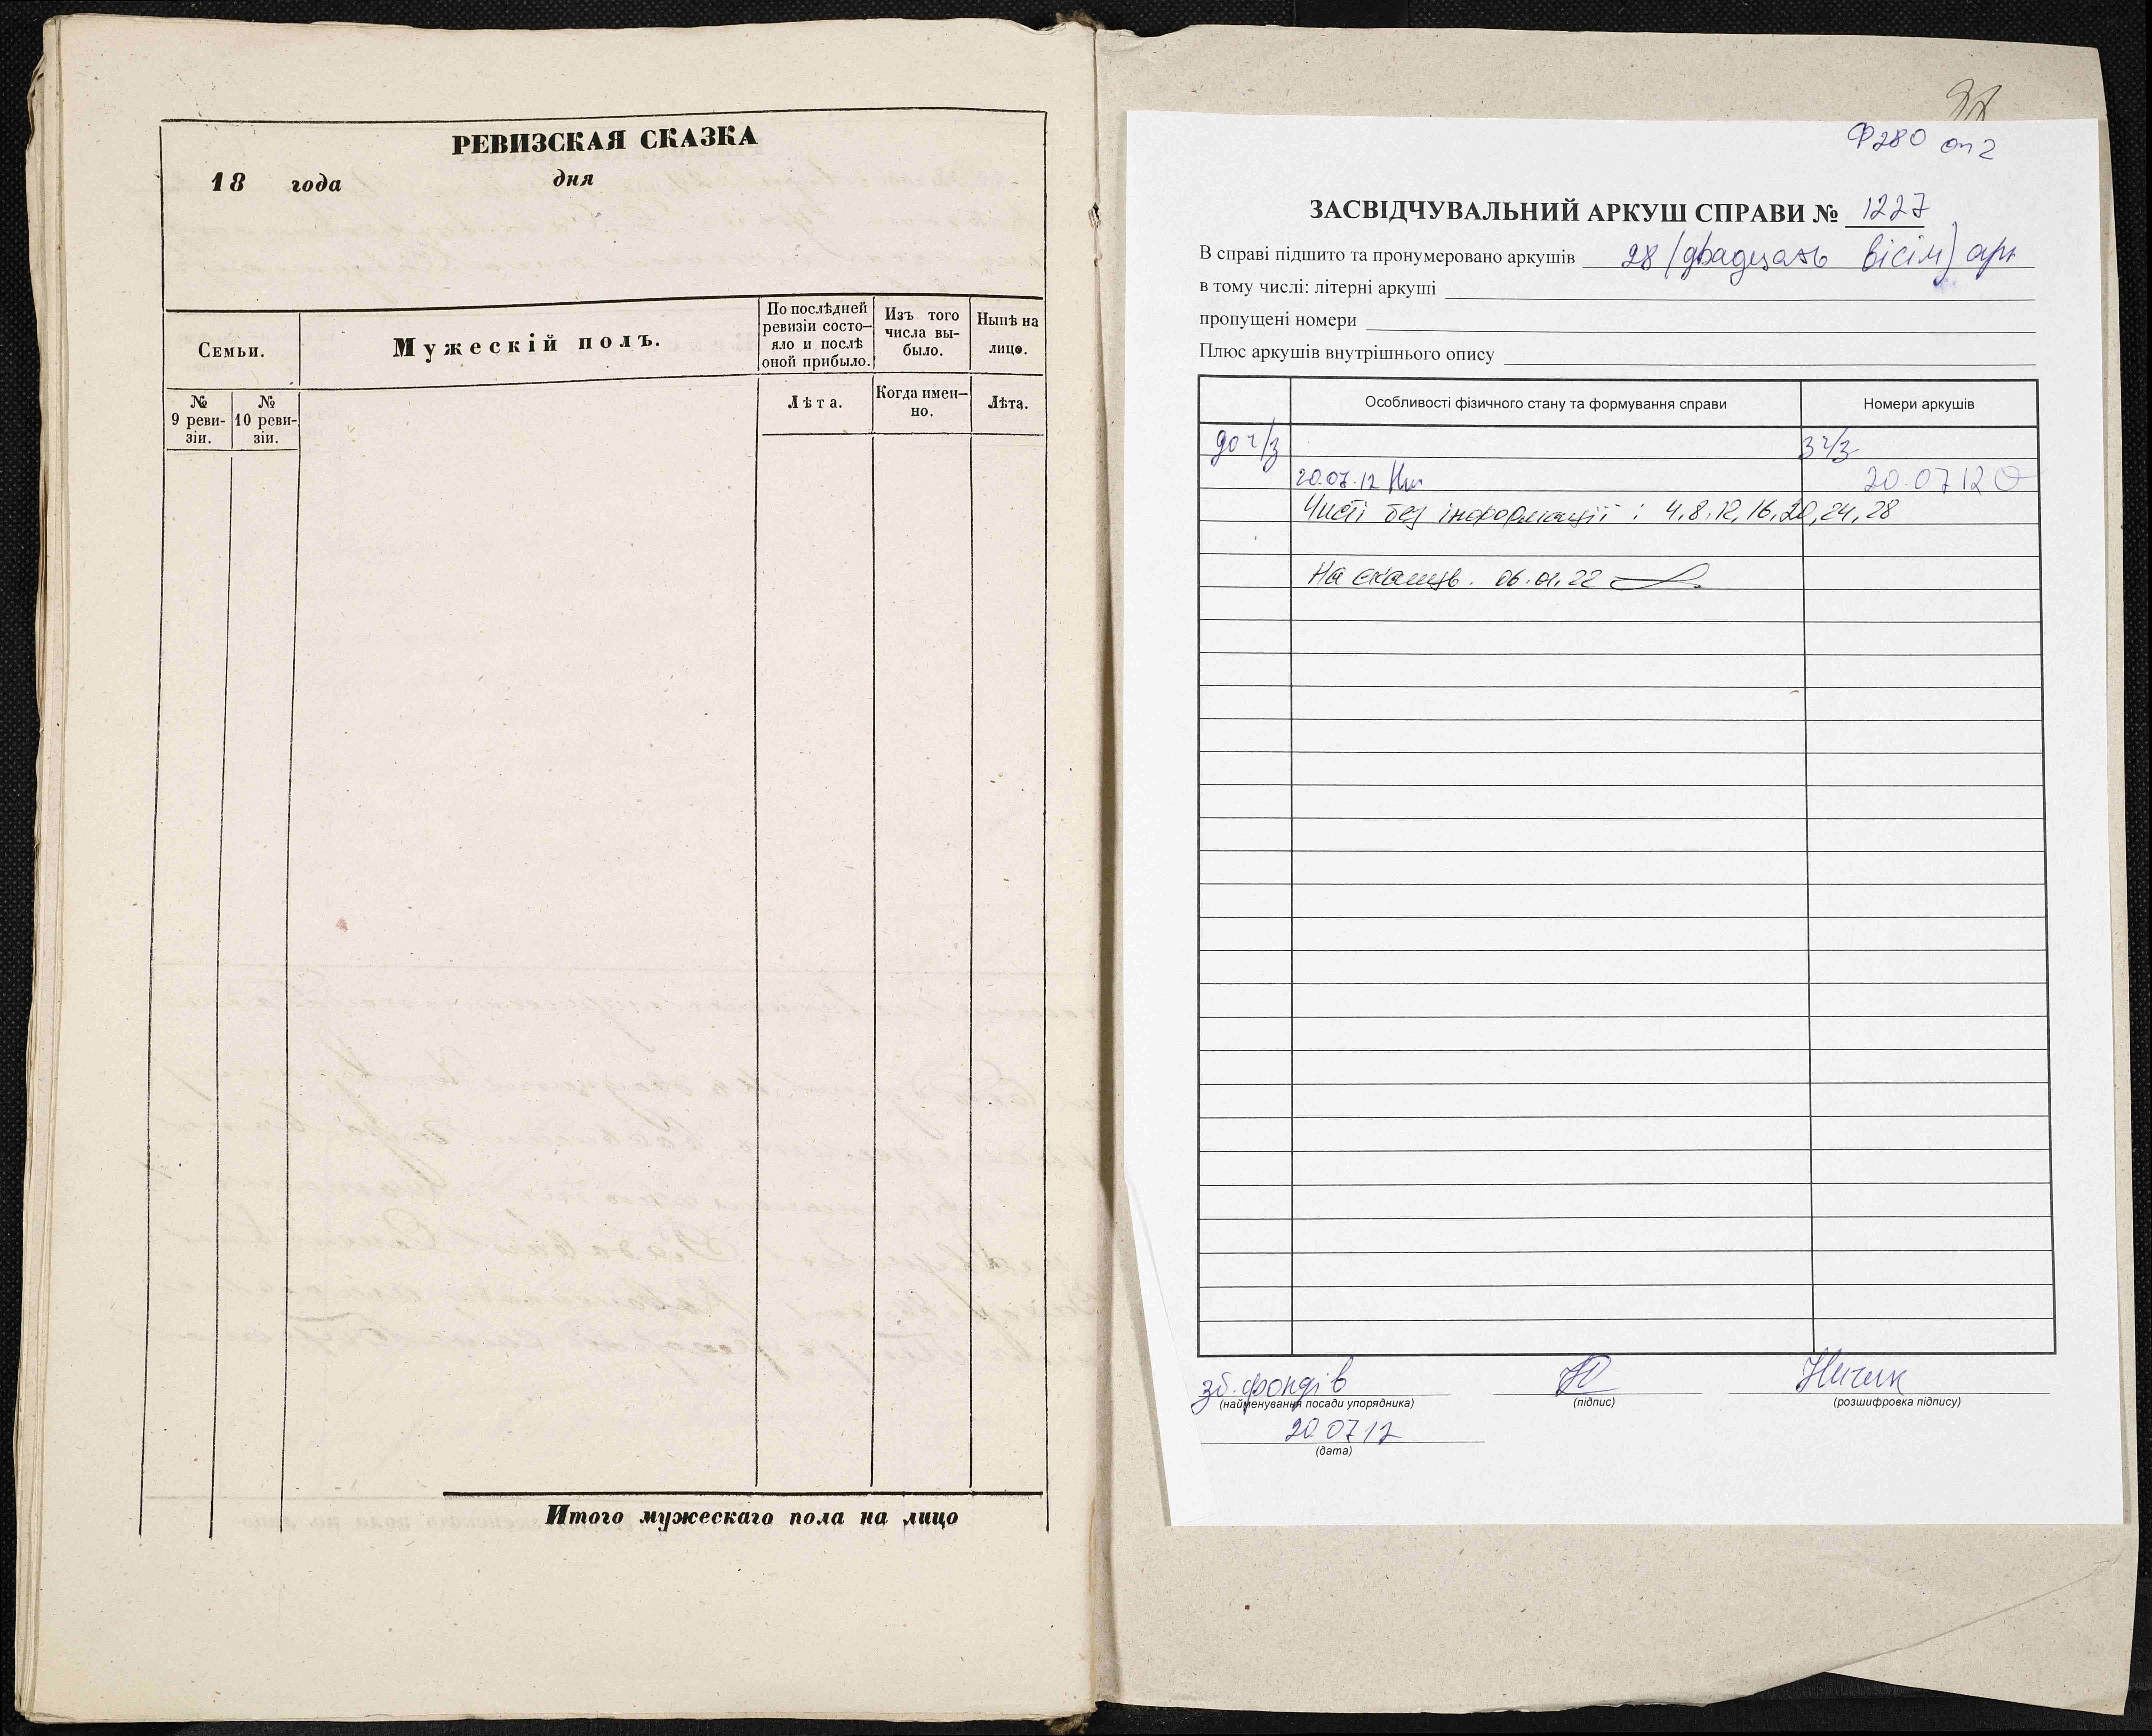 РЕВИЗСКАЯ СКАЗКА
18 года дня
Семьи.
Мужескій полъ.
По послѣдней ревизіи состо-
яло и послѣ
оной прибыло.
Изъ того
числа вы-
было.
Нынѣ на
лице.
№
9 реви-
зіи.
№
10 реви-
зіи.
Лѣта.
Когда имен-
но.
Лѣта.
Итого мужескаго пола на лицо
Ф 280 оп 2
ЗАСВІДЧУВАЛЬНИЙ АРКУШ СПРАВИ № 1227
В справі підшито та пронумеровано аркушів 28 (двадцять вісім) арк
в тому числі: літерні аркуші
пропущені номери
Плюс аркушів внутрішнього опису
Особливості фізичного стану та формування справи
Номери аркушів
до ч/з
з ч/з
20.07.12
20.07 12
Чисті без інформації: 4, 8, 12, 16, 20, 24, 28
На сканув. 06.01.22
зб. фондів
(найменування посади упорядника)
(підпис)
(розшифровка підпису)
20 07 12
(дата)